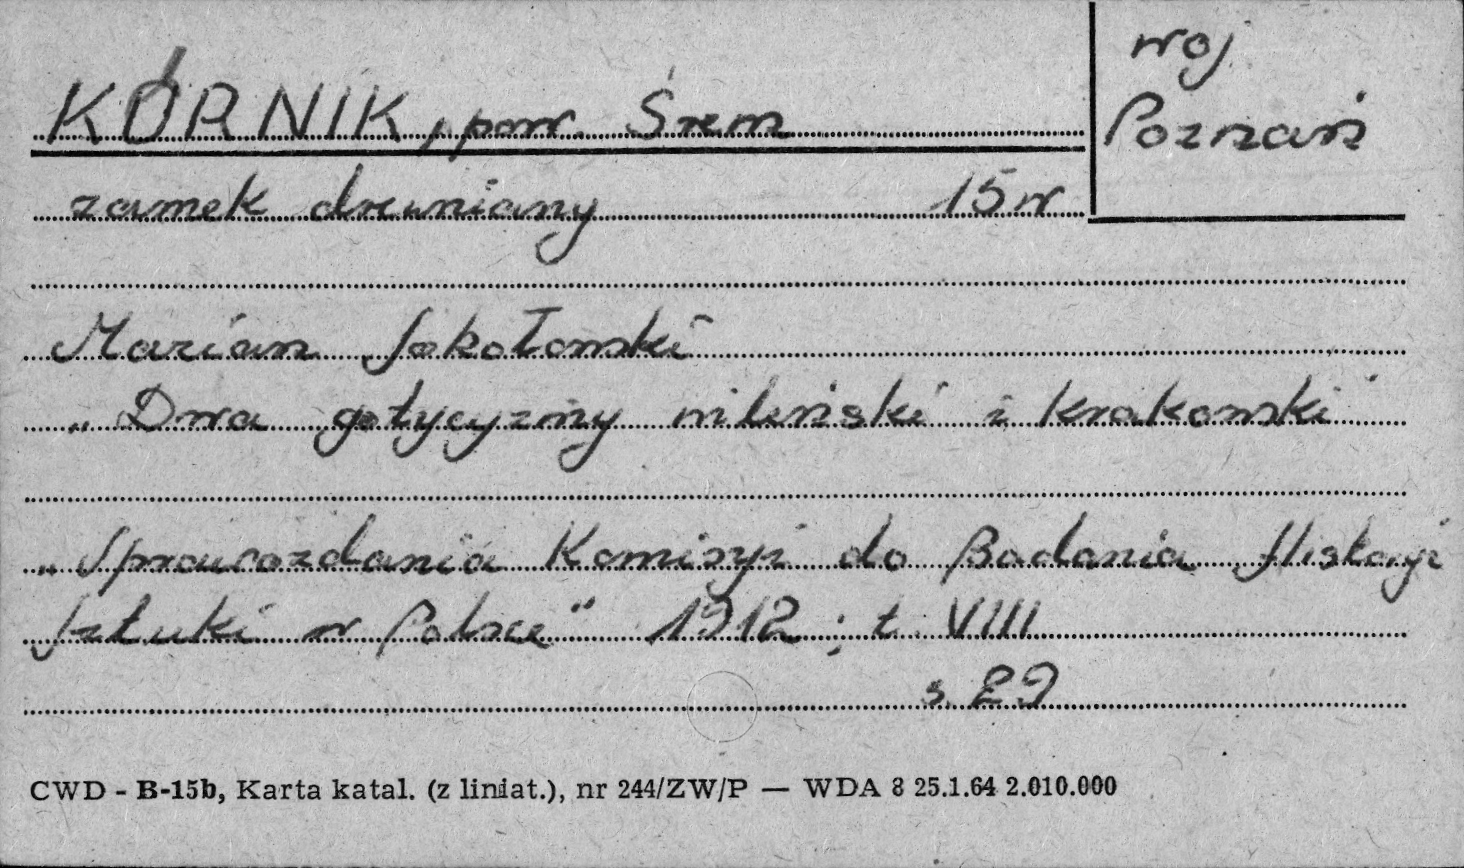 woj
Poznań
KÓRNIK, pow. Śrem
zamek drewniany 15 w
Marian Sokołowski
„Dwa gotycyzmy wileński i krakowski
„Sprawozdania Komisyi do Badania Historyi
Sztuki w Polsce" 1912; t. VIII
s. 29
CWD - B-15b, Karta katal. (z liniat.), nr 244/ZW/P — WDA 8 25.1.64 2.010.000